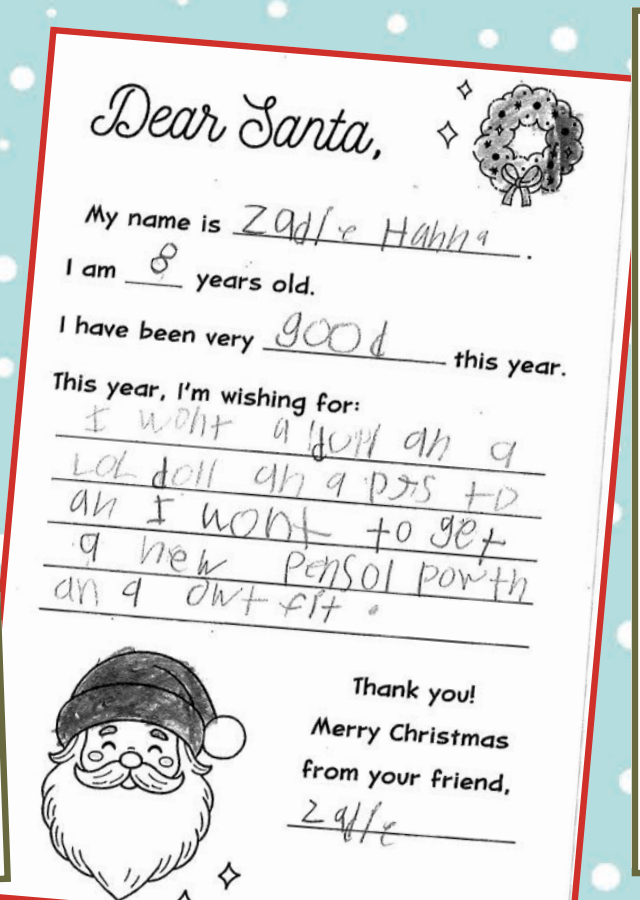 Dear Santa,
My name is Zadie Hanna.
I am 8 years old.
I have been very good this year.
This year, I'm wishing for:
I wont a doll an a
LOL doll an a prs to
an I wont to get
a new pensol powth
an a owt fit.
Thank you!
Merry Christmas
from your friend,
Zadie